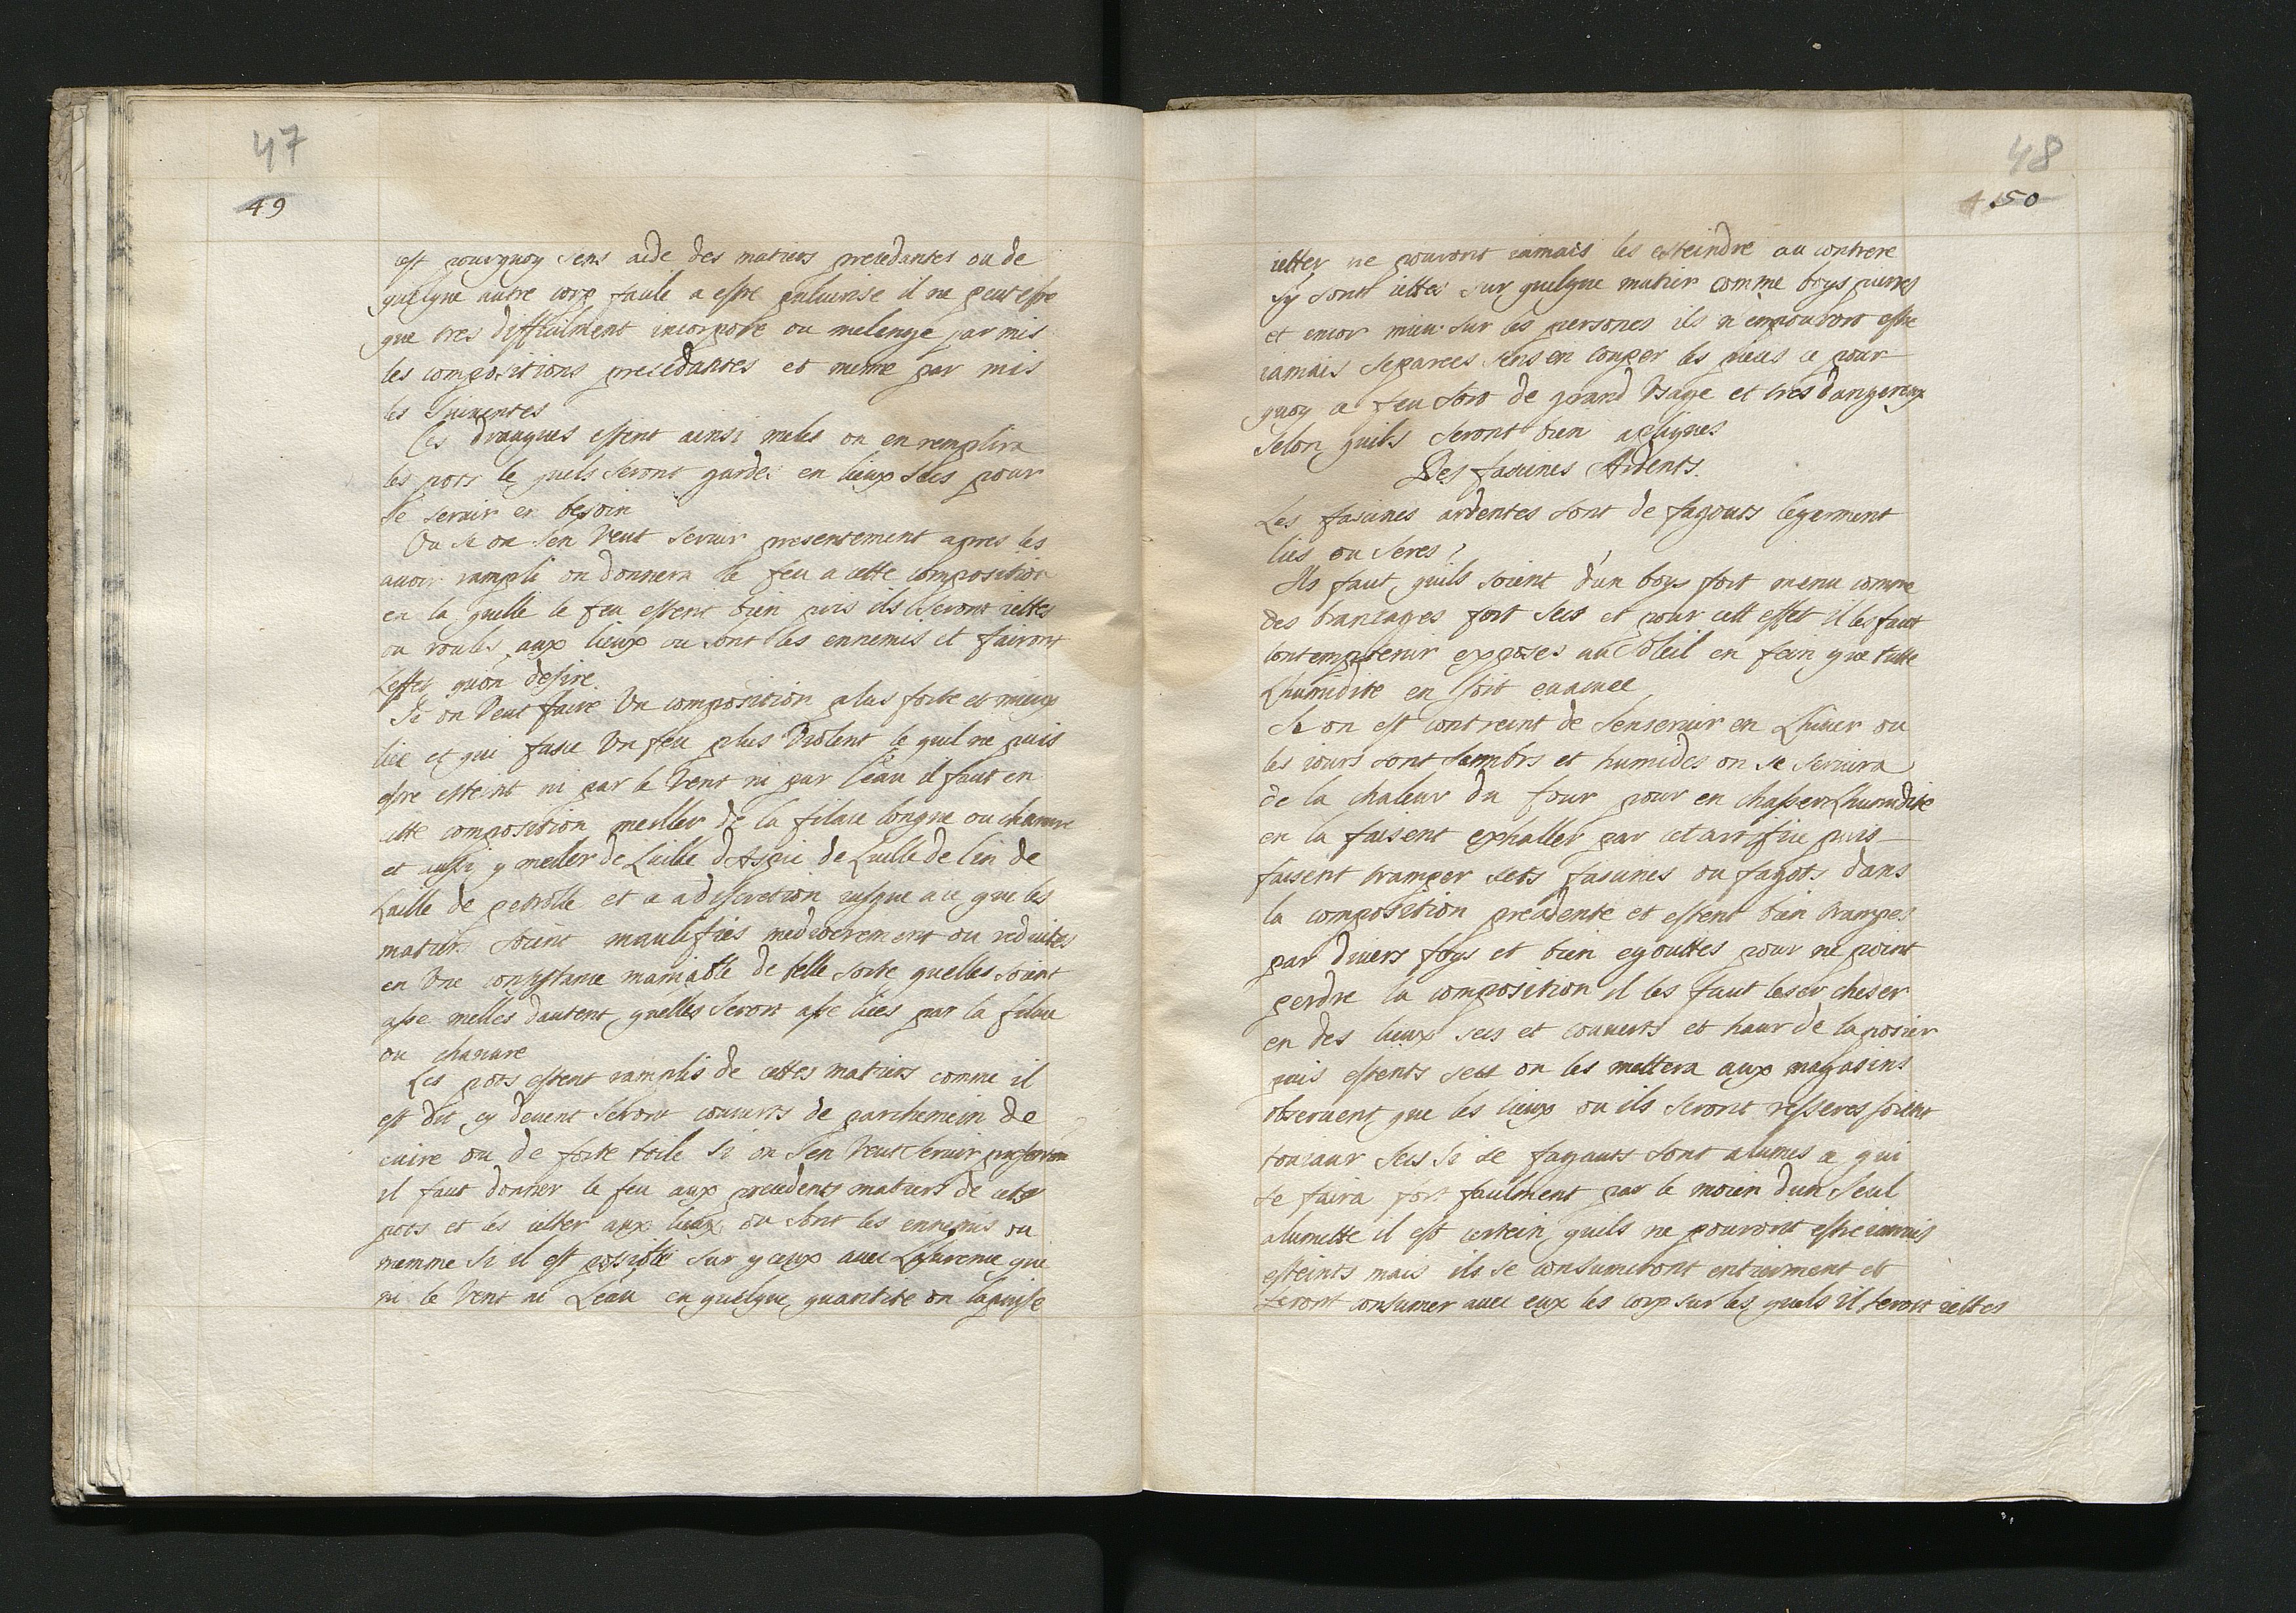 47
49
est pourquoy sens aide des matiers precedantes ou de
quelque autre corp facile a estre puluerise il ne peut estre
que tres difficilment incorpore ou melenge par mis
les compositions precedantes et meme par mis
les suiuentes
Ces drauques estent ainsi meles on en remplira
les pots le quels seront gardes en lieux secs pour
se seruir en besoin
Ou se on sen veut seruir presentement apres les
auoir rampli on donnera le feu a cette composition
en la quelle le feu estent bien pris ils seront iettes
ou roules aux lieux ou sont les ennemis et fairont
leffet quon desire.
Si on veut faire vn composition plus forte et mieux
liée et qui fasce vn feu plus violent le quil ne puis
estre esteint ni par le vent ni par l'eau il faut en
cette composition meller de la filace longue ou chanure
et aussi y meller de Luille dAspic de Luille de lin de
Luille de petrolle et ce a discretion iusque a ce que les
matiers soient maulifiés mediocrement ou reduites
en vne consistance maniable de telle sorte quelles soient
asse melles dautent quelles seront asse liées par la filace
ou chanure
Les pots estent ramplis de cettes matiers comme il
est dit cy deuent seront couuerts de parchemein de
cuire ou de forte toile si on s'en veut seruir
il faut donner le feu aux precedents matiers de cets
pots et les ietter aux lieux ou sont les ennemis ou
memme si il est possible sur yceux auec Lasurence que
ni le vent ni Leau en quelque quantite on la puisse
48
50
ietter ne pouront iamais les esteindre au contrere
sy sont iettes sur quelque matier comme boys pierres
et encor mieu sur les persones ils n'en pouront estre
iamais separees sens en couper les pieces ce pour
quoy ce feu sont de grand vsage et tres dangereux
selon quils seront bien apliques
Des fascines Ardents.
Les fascines ardentes sont de fagouts legerment
liés ou serés
Ils faut quils soient d'un boys fort menu comme
des brancages fort secs et pour cett effet il les faut
lontemp tenir exposes au soleil en fein que tutte
Lhumidite en soit euacuee
Se on est contreint de sen seruir en Lhiuer ou
les iours sont sombrs et humides on se seruira
de la chaleur du four pour en chasser Lhumidite
en la faisent exhaller par cet artifice puis
faisent tramper cets fascines ou fagots dans
la composition precedente et estent bien trampes
par diuers foys et bien egouttes pour ne point
perdre la composition il les faut leser cheser
en des lieux secs et couuerts et haur de la posier
puis estents secs on les mettera aux magasins
obseruent que les lieux ou ils seront resseres soient
touiaur secs si se fagauts sont alumes ce qui
se faira fort facilment par le moien d'un seul
alumette il est certein quils ne pouront estre iamais
esteints mais ils se consumeront entierment et
feront consumer auec eux les corp sur les quels il seront iettes